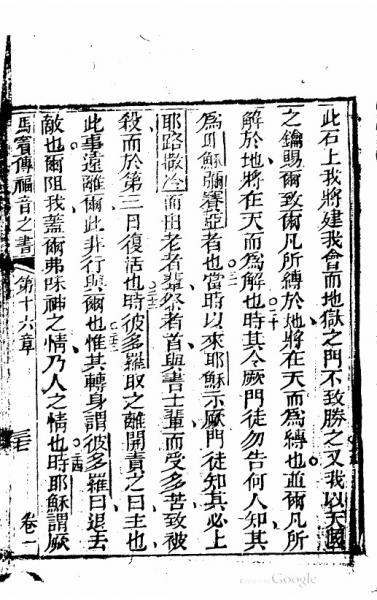 此石上我將建我會而地獄之門不致勝之又我以天國
之鑰賜爾致爾凡所縛於地將在天而為縛也並爾凡所
解於地將在天而為解也時其令厥門徒勿告何人知其
為耶穌彌賽亞者也當時以來耶穌示厥門徒知其必上
耶路撒冷而由老者輩祭者首與書士輩而受多苦致被
殺而於第三日復活也時彼多羅取之離開責之曰主也
此事遠離爾此非行與爾也惟其轉身謂彼多羅曰退去
敵也爾阻我蓋爾弗味神之情乃人之情也時耶穌謂厥
馬竇傳福音之書 第十六章 卷一
二十
二一
二二
二三
二四
Google